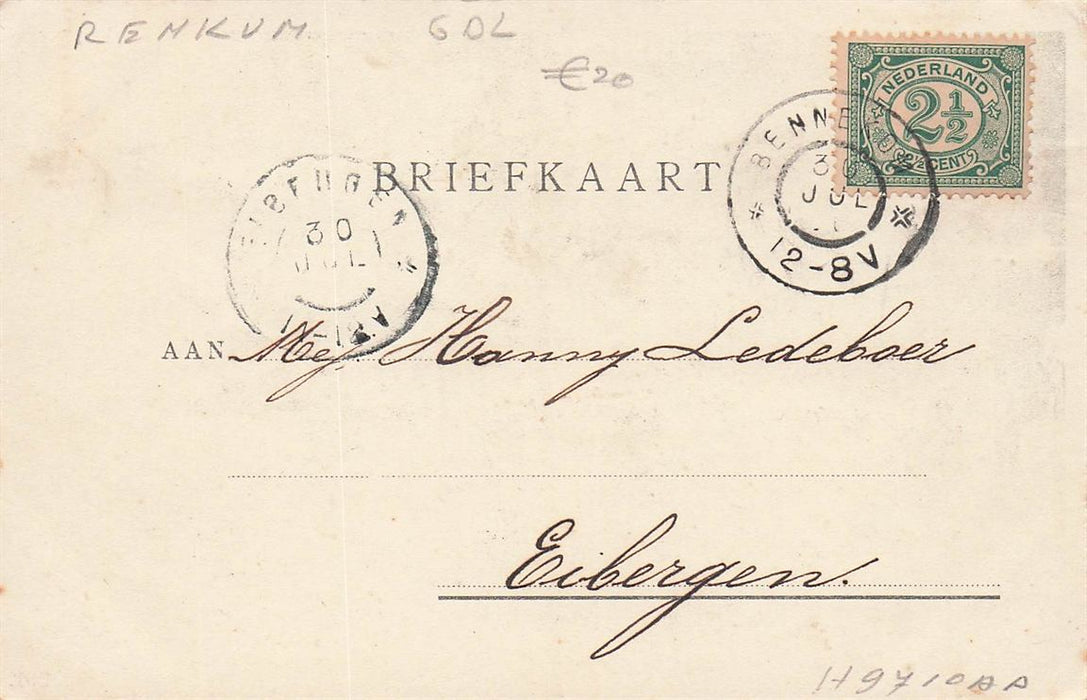 RENKUM GDL
€20
NEDERLAND
2½
2½ CENT
BENNEKOM
30
JUL
12-8V
BRIEFKAART
EIBERGEN
30
JUL
AAN Mej. Hanny Ledeboer
Eibergen.
H9710AA